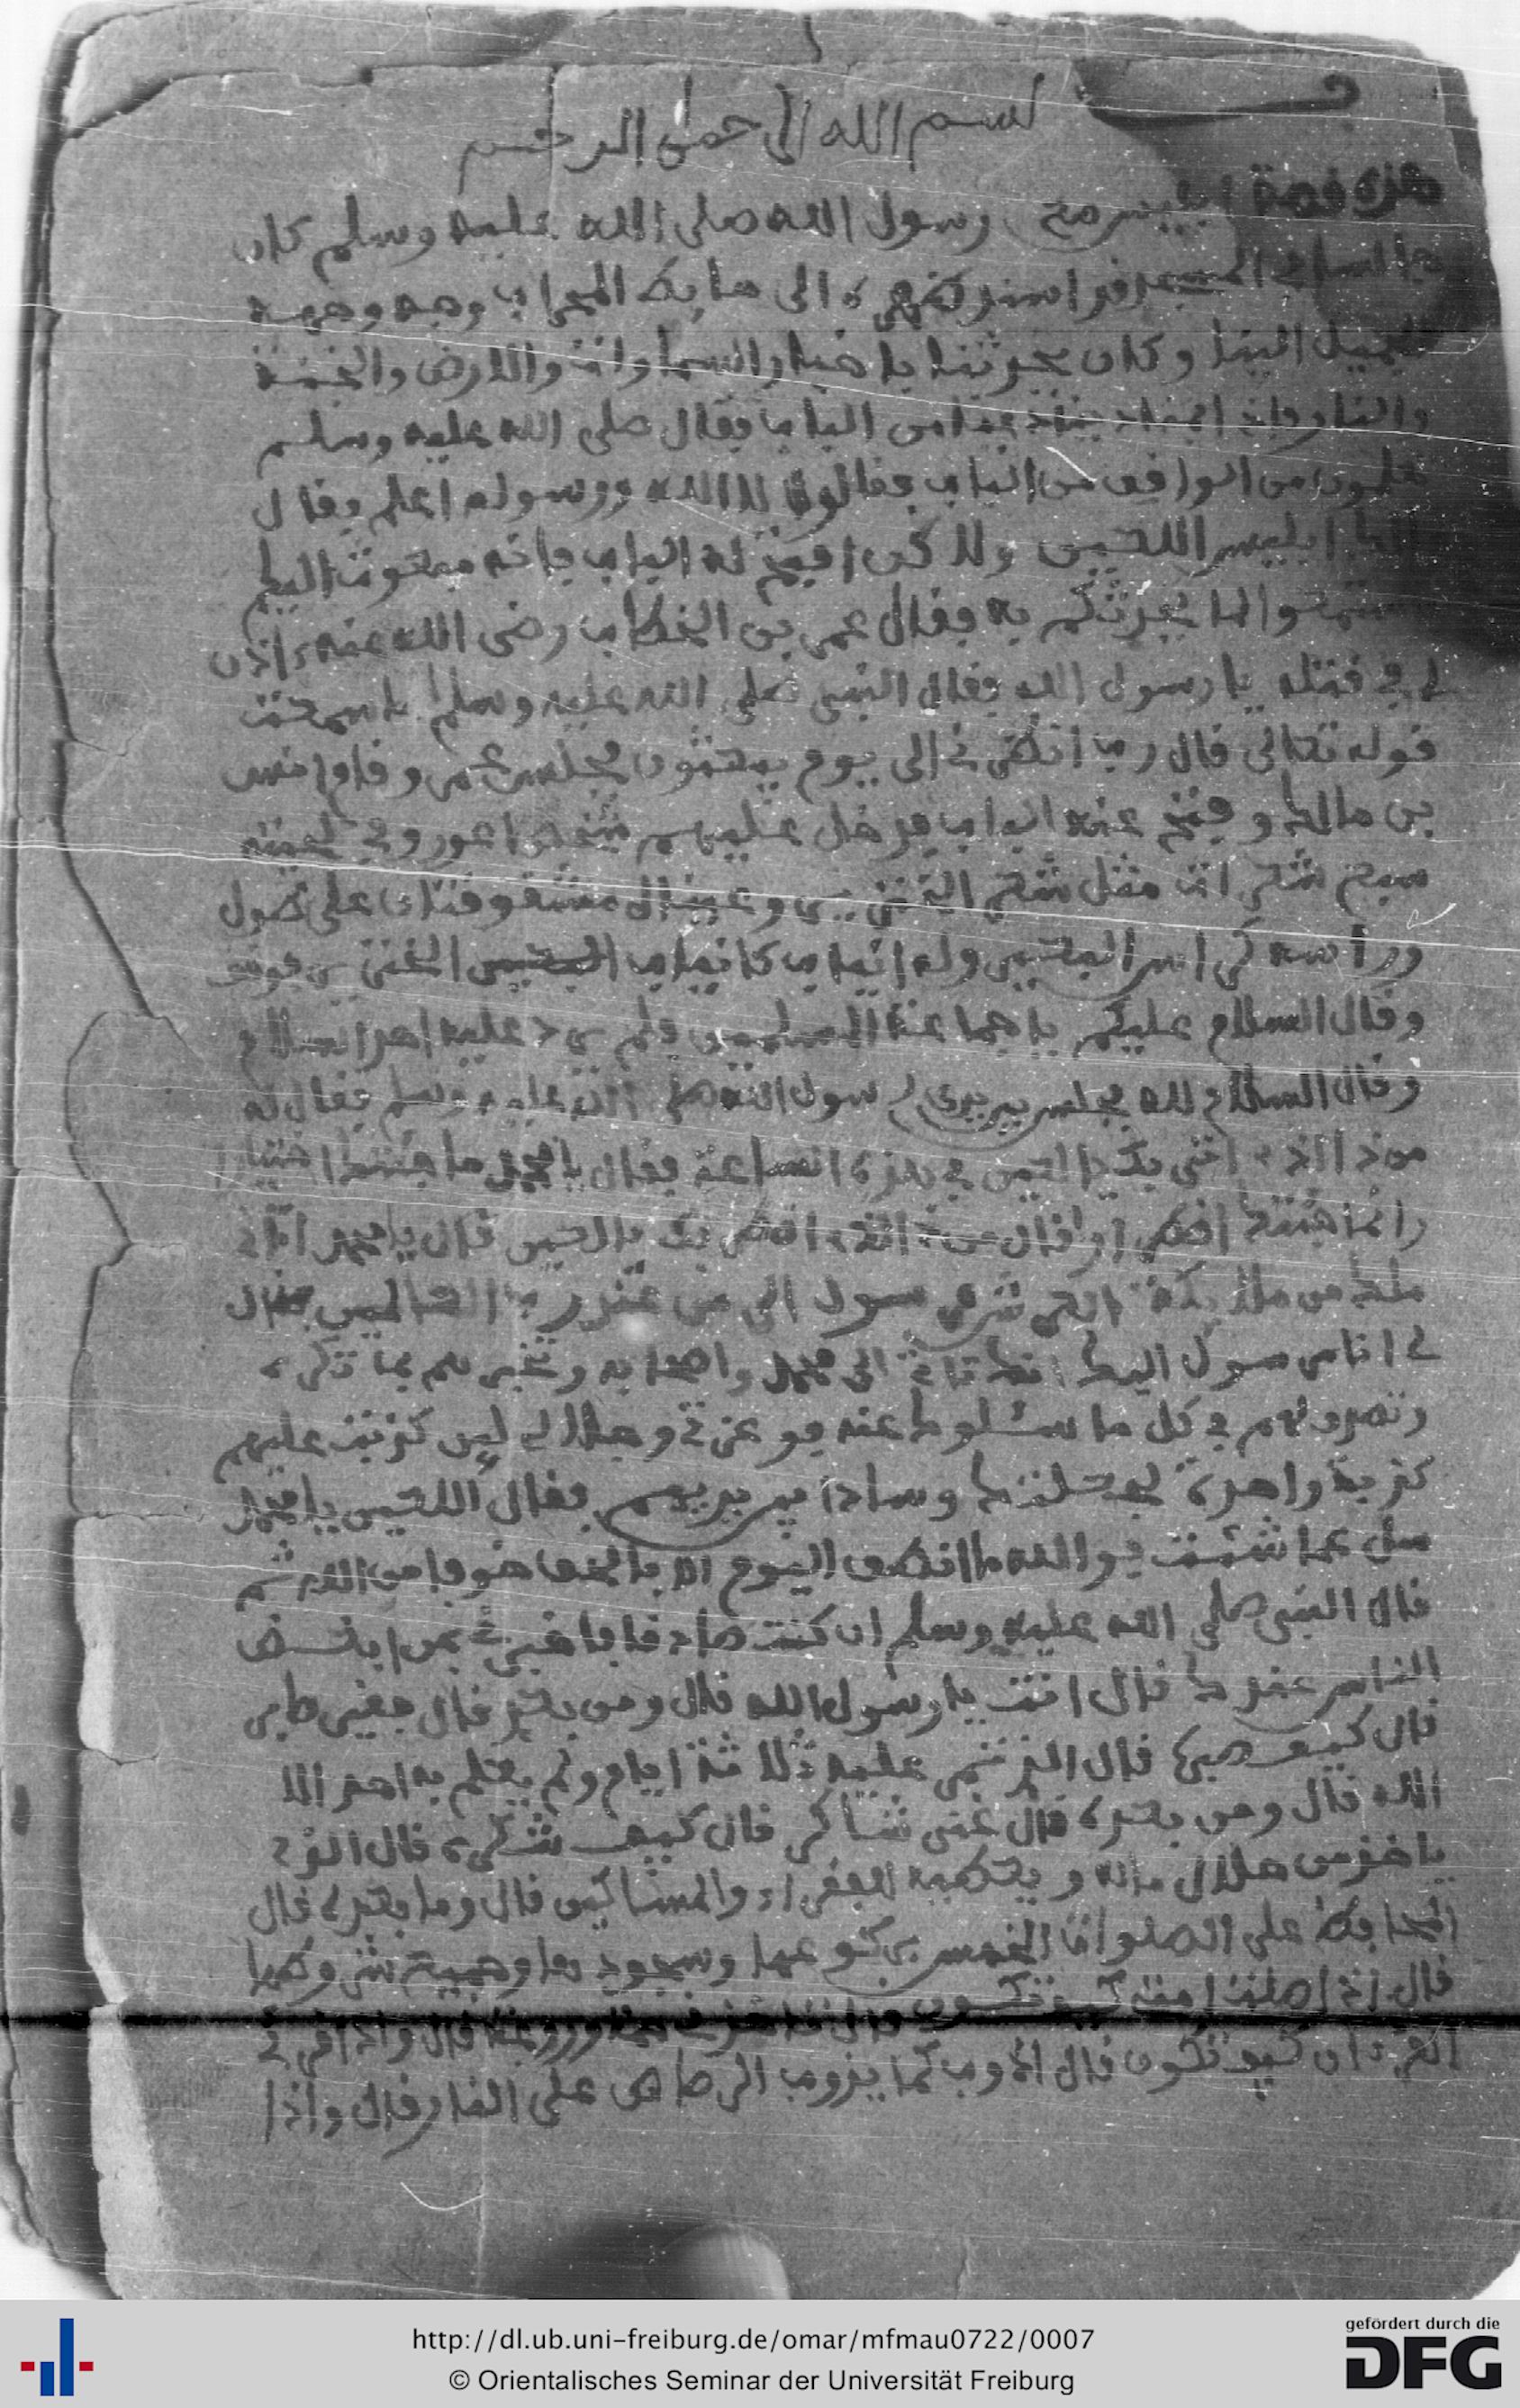 بسم الله الرحمن الرحيم
هذه قصة ابليس مع رسول الله صلى الله عليه وسلم كان
جالسا في المسجد قد اسند ظهره الى حايط المحراب وجه وجهه
الجميل الينا وكان يحدثنا باخبار السماوات والارض والجنة
والنار واذا بمناد يناد من الباب فقال صلى الله عليه وسلم
من الواقف من الباب فقالوا لا الله ورسوله اعلم وقال
هذا ابليس اللعين ولاكن افتح له الباب فانه مبعوث اليكم
استمعوا لما يحدثكم به فقال عمر بن الخطاب رضى الله عنه اذن
لي في قتله يا رسول الله فقال النبي صلى الله عليه وسلم اما سمعت
قوله تعالى قال رب انظرني الى يوم يبعثون فجلس عمر وقام انس
بن مالك وفتح عنه الباب فدخل عليهم شخص اعور وفي لحيته
سبع شعرات مثل شعر الخنزير وعيناه مشقوقتان على طول
وراسه كراس البعير وله انياب كانياب الخنزير
وقال السلام عليكم يا جماعة المسلمين فلم يرد عليه احد السلام
وقال السلام لله فجلس بين يدي رسول الله صلى الله عليه وسلم فقال له
من ذا الذي اتى بك يا لعين في هذه الساعة فقال يا محمد ما جئتك اختيارا
انما جئتك اضطرارا قال من الذي اضطر بك يا لعين قال يا محمد اتاني
ملك من ملائكة رسول الي من عند رب العالمين فقال
لي انا رسول اليك انك تاتي الى محمد واصحابه وتخبرهم بما تكره
وتصدقهم في كل ما سئلوك عنه فوعزتي وجلالي لين كذبت عليهم
كذبة واحدة لجعلتك رمادا بين يديهم فقال اللعين يا محمد
سل عما شئت فوالله ما انطق اليوم الا بالحق خوفا من الله ثم
قال النبي صلى الله عليه وسلم ان كنت صادقا فاخبرني بمن ابغض
الناس عندك قال انت يا رسول الله قال ومن بعد قال فقير صابر
قال كيف صبره قال الذي عليه ثلاثة ايام ولم يعلم به احد الا
الله قال ومن بعده قال غني شاكر قال كيف شكره قال الذي
ياخذ من حلال ماله ويعطيه الفقراء والمساكين قال وما بعده قال
المحافظ على الصلوات الخمس بركوعها وسجودها وشروطها
قال اذا صليت امتي كيف تكون قال قال واذا قرئ
القرءان كيف تكون قال اذوب كما يذوب الرصاص على النار قال واذا
http://dl.ub.uni-freiburg.de/omar/mfmau0722/0007
© Orientalisches Seminar der Universität Freiburg
gefördert durch die
DFG